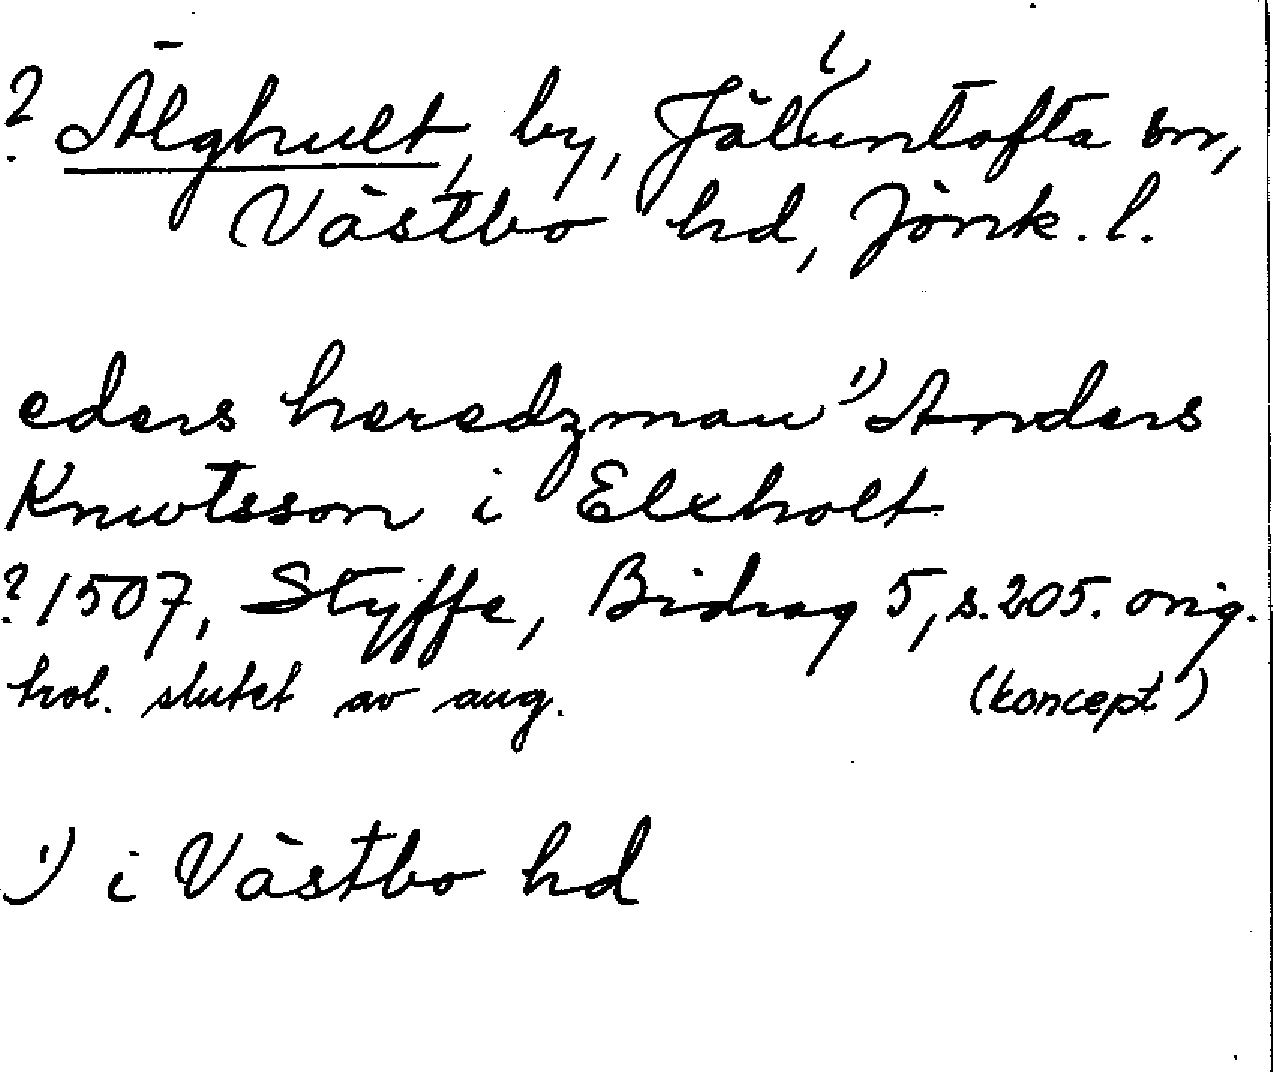 ? Älghult, by, Jälluntofta sn,
Västbo hd, Jönk. l.
eders heredzman ¹) Anders
Knutsson i Elxholt
? 1507, Styffe, Bidrag 5, s. 205. orig.
trol. slutet av aug. (koncept)
¹) i Västbo hd